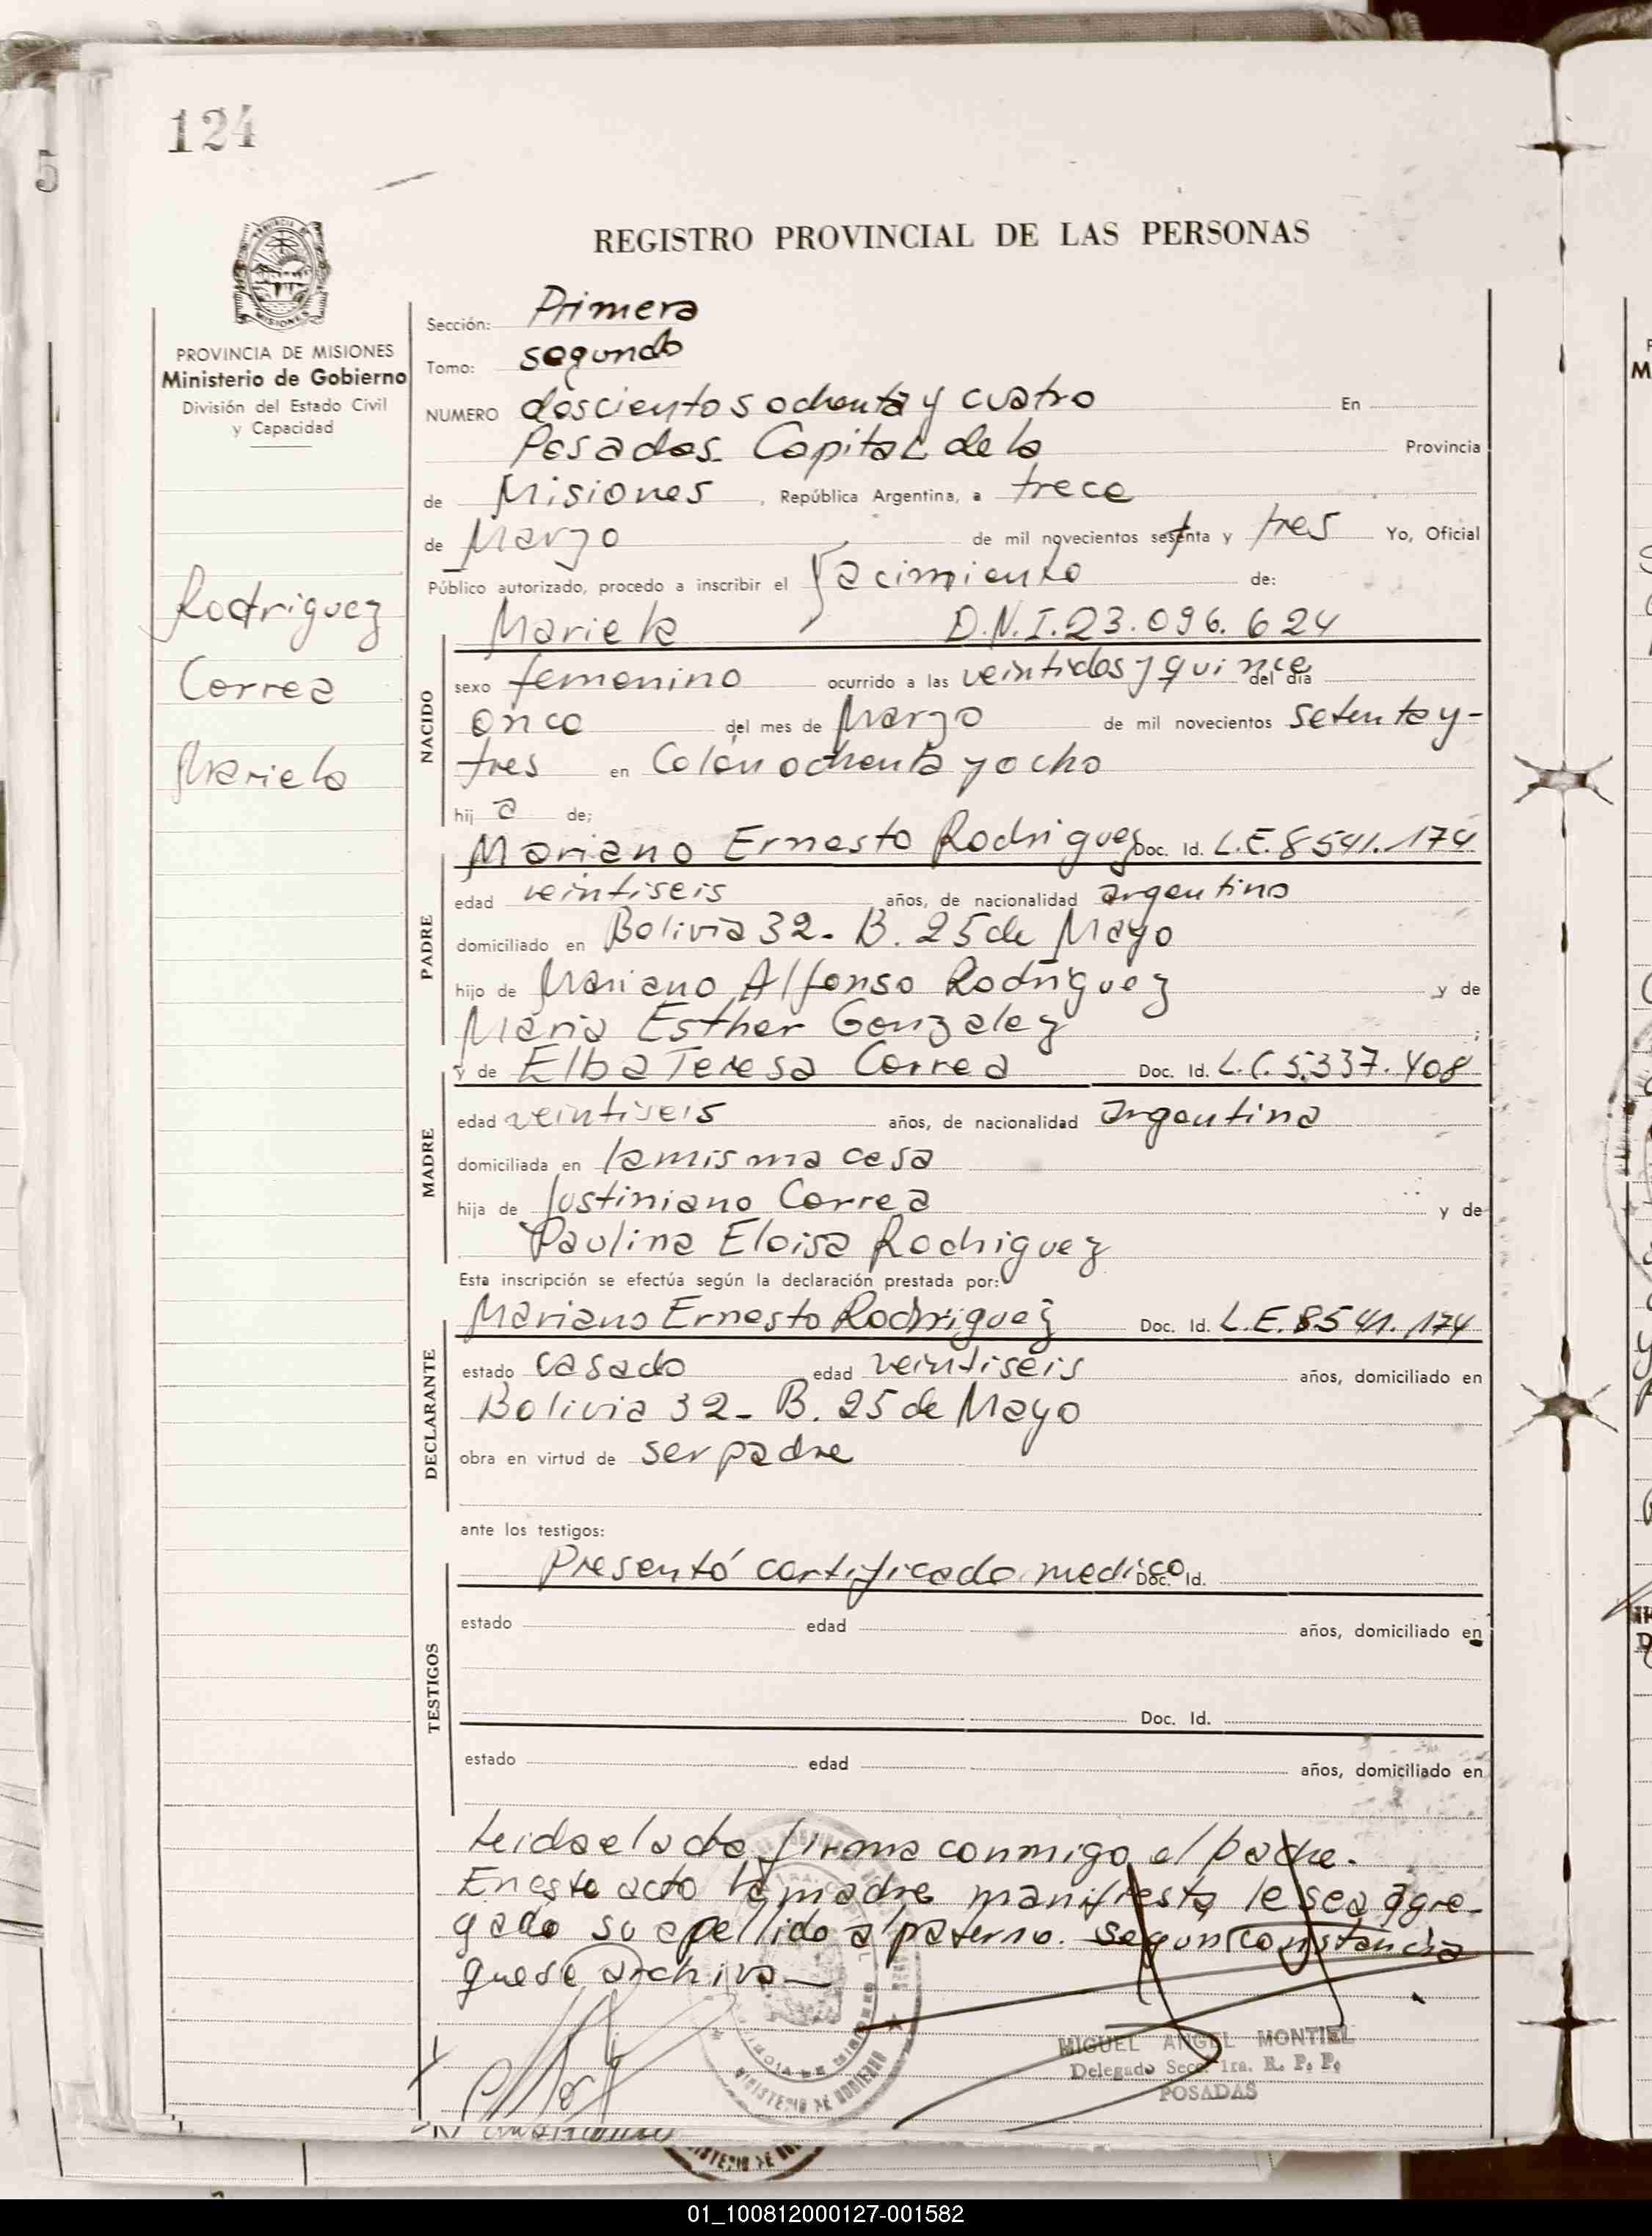 124
5
REGISTRO PROVINCIAL DE LAS PERSONAS
PROVINCIA DE MISIONES
Ministerio de Gobierno
División del Estado Civil
y Capacidad
Rodriguez
Correa
Mariela
Sección: Primera
Tomo: segundo
NUMERO doscientos ochenta y cuatro En
Posadas Capital de la Provincia
de Misiones, República Argentina, a trece
de Marzo de mil novecientos setenta y tres Yo, Oficial
Público autorizado, procedo a inscribir el Nacimiento de:
Mariela D.N.I. 23.096.624
NACIDO
sexo femenino ocurrido a las veintidos y quince del día
once del mes de Marzo de mil novecientos setenta y-
tres en Colón ochenta y ocho
hij a de;
Mariano Ernesto Rodriguez Doc. Id. L.E. 8541.174
PADRE
edad veintiseis años, de nacionalidad argentino
domiciliado en Bolivia 32- B. 25 de Mayo
hijo de Mariano Alfonso Rodriguez y de
Maria Esther Gonzalez ;
y de Elba Teresa Correa Doc. Id. L.C. 5.337.408
MADRE
edad veintiseis años, de nacionalidad argentina
domiciliada en la misma casa
hija de Justiniano Correa y de
Paulina Eloisa Rodriguez
Esta inscripción se efectúa según la declaración prestada por:
Mariano Ernesto Rodriguez Doc. Id. L.E. 8541.174
DECLARANTE
estado casado edad veintiseis años, domiciliado en
Bolivia 32- B. 25 de Mayo
obra en virtud de ser padre
ante los testigos:
Presentó certificado medico Doc. Id.
TESTIGOS
estado edad años, domiciliado en
Doc. Id.
estado edad años, domiciliado en
Leida el acta firma conmigo el padre.
En este acto la madre manifiesta le sea agre-
gado su apellido al paterno. segun constancia
que se archiva-
MIGUEL ANGEL MONTIEL
Delegado Secc. 1ra. R. P. P.
POSADAS
MINISTERIO DE GOBIERNO
01_100812000127-001582